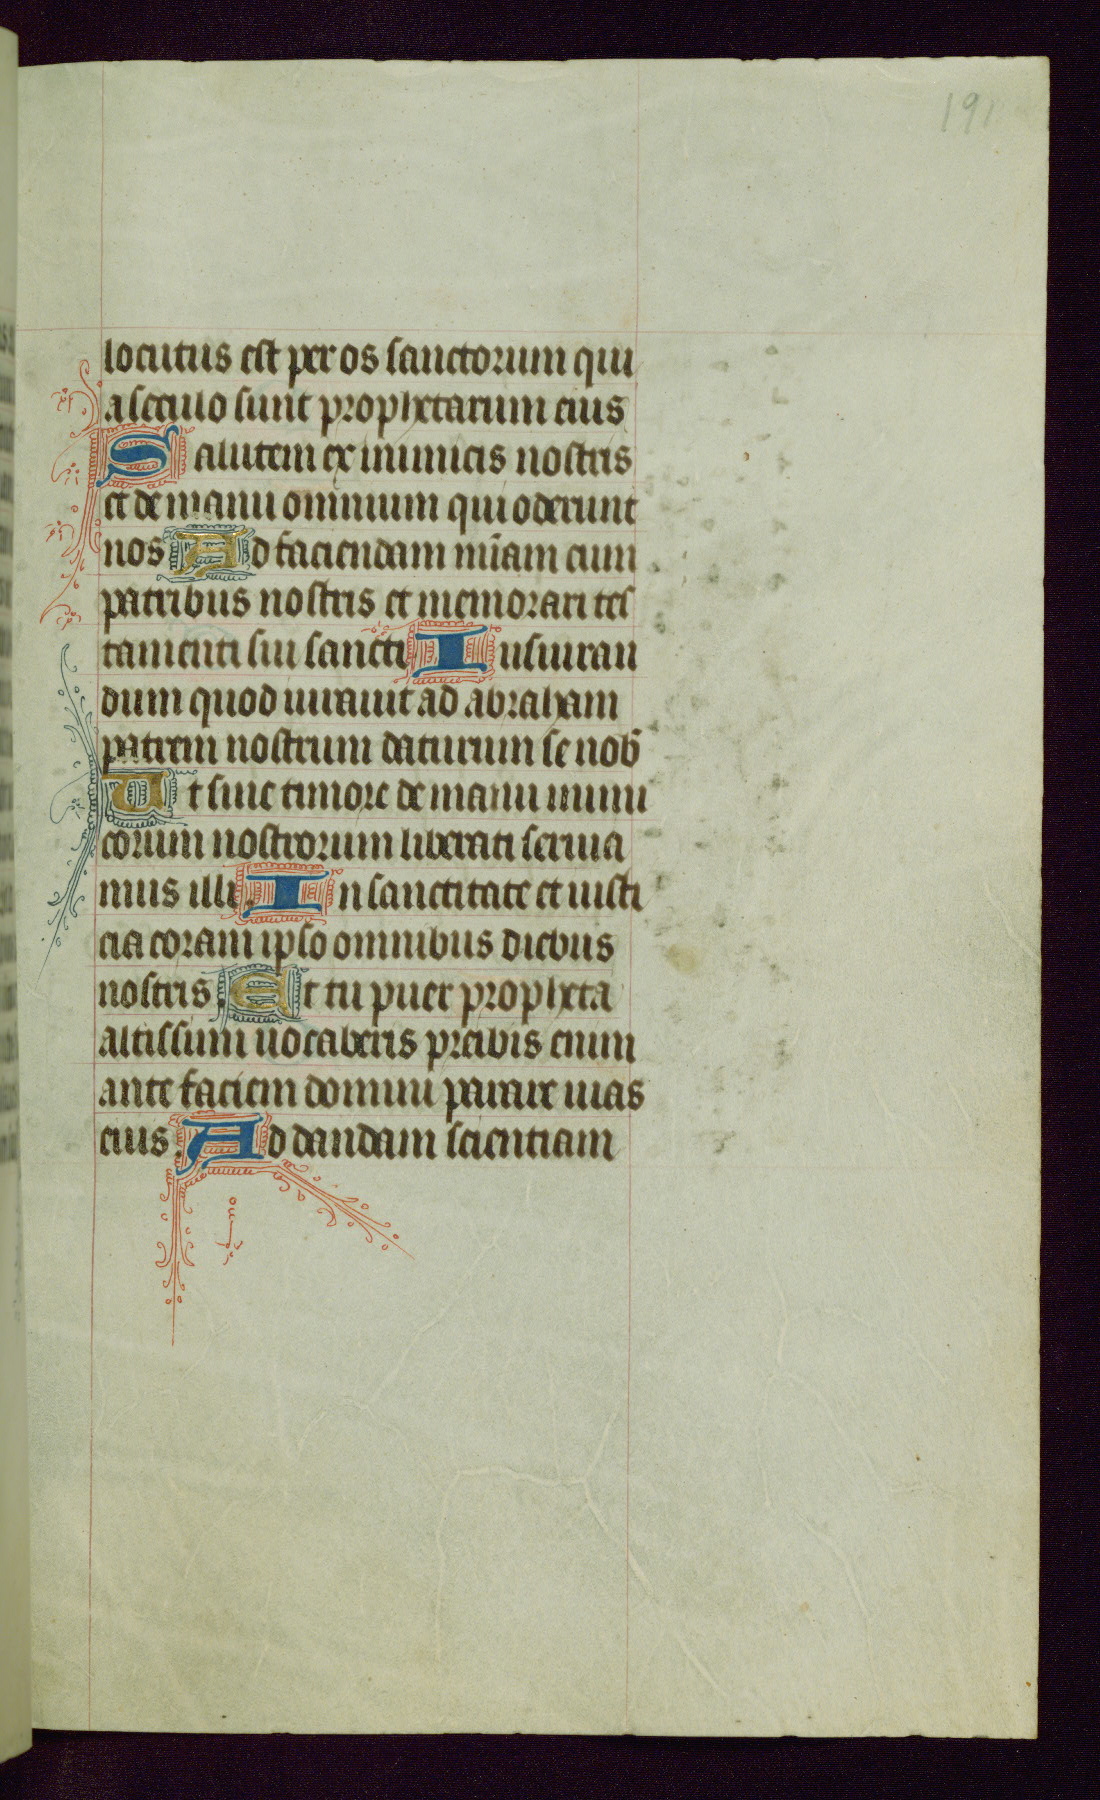 191
locutus est per os sanctorum qui
a seculo sunt prophetarum eius
Salutem ex inimicis nostris
et de manu omnium qui oderunt
nos Ad faciendam mīam cum
patribus nostris et memorari tes
tamenti sui sancti Iusiuran
dum quod iurauit ad abraham
patrem nostrum daturum se nob̄
Ut sine timore de manu inimi
corum nostrorum liberati seruia
mus illi. In sanctitate et iusti
cia coram ipso omnibus diebus
nostris. Et tu puer propheta
altissimi uocaberis preibis enim
ante faciem domini parare uias
eius. Ad dandam scientiam